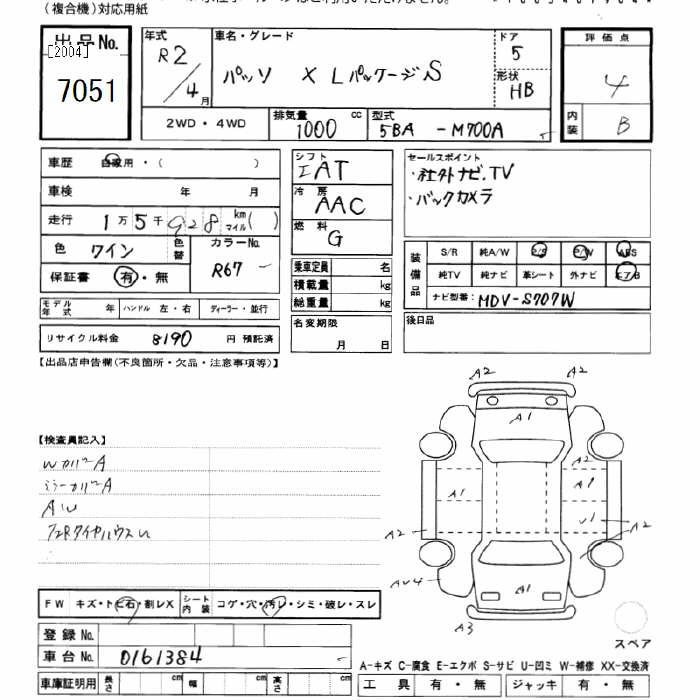 (複合機)対応用紙
出品No.
[2004]
7051
年式
R2/4月
車名・グレード
パッソ X LパッケージS
ドア
5
形状
HB
評価点
4
内装
B
2WD・4WD
排気量
1000 cc
型式
5BA -M700A
車歴 自家用・( )
車検 年 月
走行 1万5千928 km マイル( )
色 ワイン
色替
カラーNo.
R67
保証書 有・無
モデル年式 年 ハンドル 左・右 ディーラー・並行
リサイクル料金 8190 円 預託済
シフト
IAT
冷房
AAC
燃料
G
乗車定員 名
積載量 kg
総重量 kg
名変期限
月 日
セールスポイント
・社外ナビ.TV
・バックカメラ
装備品
S/R 純A/W P/S P/W ABS
純TV 純ナビ 革シート 外ナビ エア/B
ナビ型番: MDV-S707W
後日品
【出品店申告欄(不良箇所・欠品・注意事項等)】
【検査員記入】
WカバーA
ミラーカバーA
AW
A2 A2
A1
A2
A1 A1
A2 U1 A2
AU4 A1
A3
FW キズ・トビ石・割レX
シート内装 コゲ・穴・汚レ・シミ・破レ・スレ
登録No.
車台No. 0161384
車庫証明用 長さ cm 幅 cm 高さ cm
スペア
A-キズ C-腐食 E-エクボ S-サビ U-凹ミ W-補修 XX-交換済
工具 有・無 ジャッキ 有・無